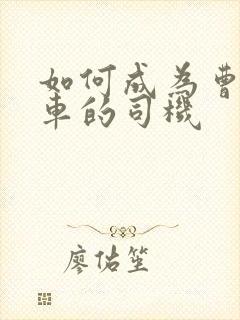 如何成为曹
车的司机
廖佑笙